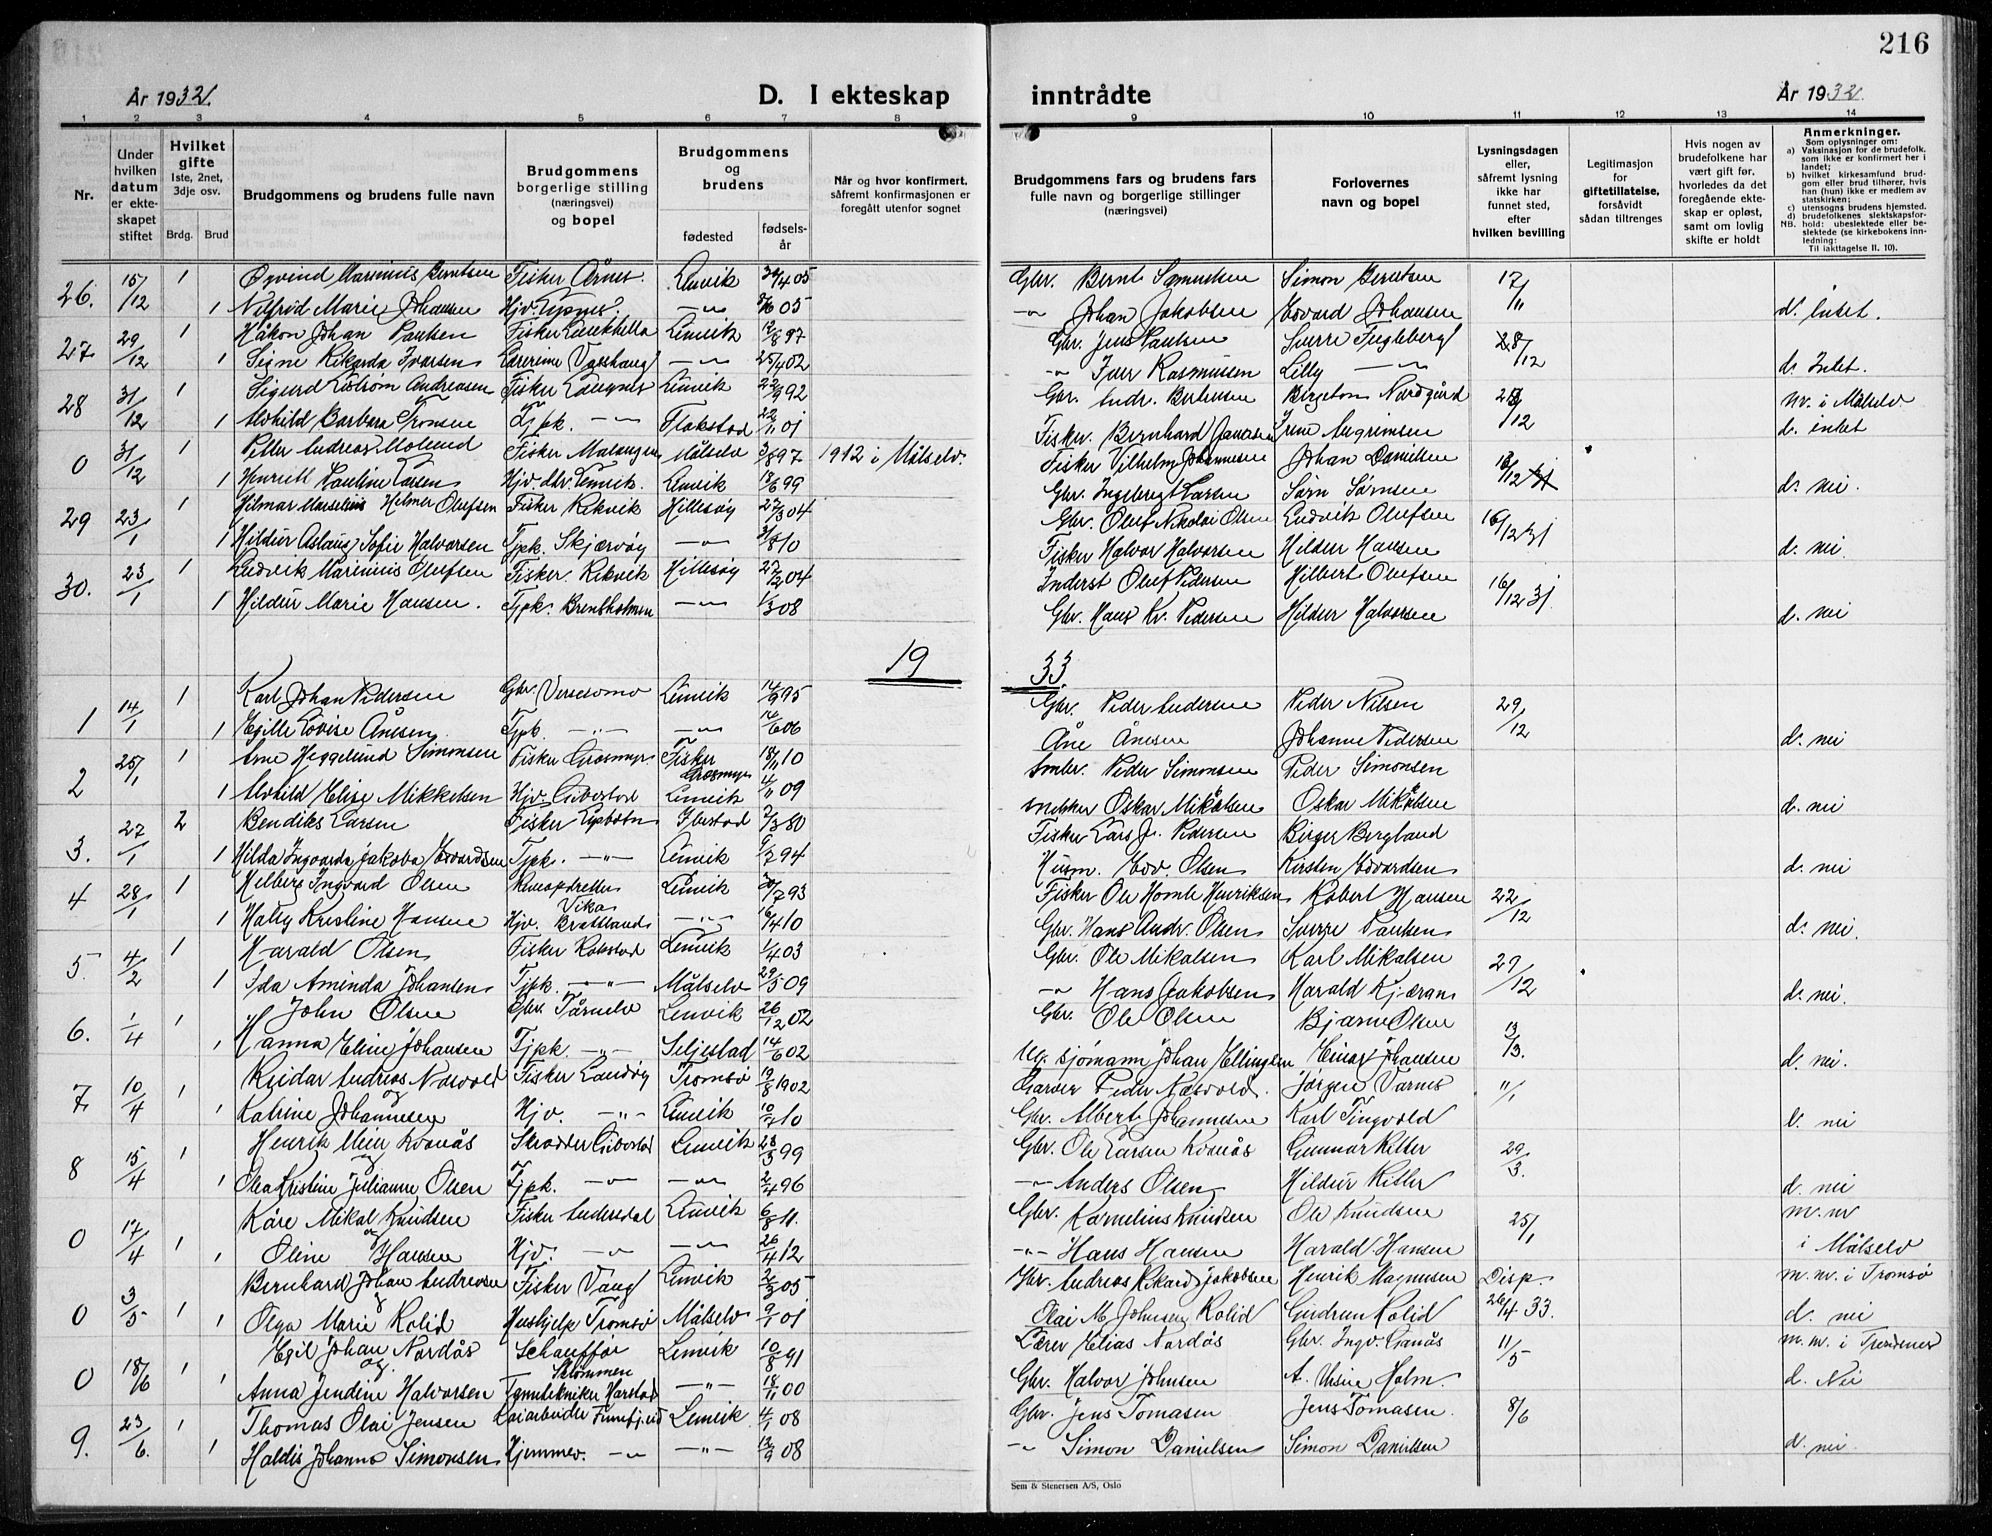 216
År 1932.
D. I ekteskap
inntrådte
År 1932.
1 2 3 4 5 6 7 8 9 10 11 12 13 14
Nr.
Under hvilken datum er ekteskapet stiftet
Hvilket gifte
1ste, 2net, 3dje osv.
Brdg. Brud
Brudgommens og brudens fulle navn
Brudgommens borgerlige stilling (næringsvei) og bopel
Brudgommens og brudens
fødested
fødselsår
Når og hvor konfirmert.
såfremt konfirmasjonen er
foregått utenfor sognet
Brudgommens fars og brudens fars
fulle navn og borgerlige stillinger
(næringsvei)
Forlovernes
navn og bopel
Lysningsdagen
eller,
såfremt lysning
ikke har
funnet sted,
efter
hvilken bevilling
Legitimasjon
for
giftetillatelse,
forsåvidt
sådan tiltrenges
Hvis nogen av
brudefolkene har
vært gift før.
hvorledes da det
foregående ekteskap er opløst,
samt om lovlig
skifte er holdt
Anmerkninger.
Som oplysninger om:
a) Vaksinasjon for de brudefolk, som ikke er konfirmert her i landet;
b) hvilket kirkesamfund brudgom eller brud tilhører, hvis han (hun) ikke er medlem av statskirken;
c) utensogns brudens hjemsted.
d) brudefolkenes slektskapsforhold: ubeslektede eller beslektede (se kirkebokens innledning:
NB. Til iakttagelse II. 10).
26. 15/12 1 Øyvind Marinius Berntsen Fisker Årnes. Lenvik 05 Gbr. Bernt Samuelsen Simon Berntsen 17/11
1 Nilfrid Marie Johansen Hjv. 05 Johan Jakobsen Edvard Johansen d. intet.
27 29/12 1 Håkon Johan Paulsen Fisker Lenvik 12/8 97 Gbr. Jens Paulsen Sverre Fugleberg 28/12
1 Signe Rikarda Ivarsen 25/4 02 Iver Rasmussen Lilly d. Intet.
28 31/12 1 Sigurd Andreasen Fisker Lenvik 22/9 92 Gbr. Nordgård nv. i Målselv
1 Alvhild Barbara Tjpk. Flakstad 22/11 01 Fisker. Bernhard d. intet
0 31/12 1 Petter Andreas Fisker Malangen Målselv 3/8 97 1912 i Målselv. Fisker Vilhelm Johannesen Johan Danielsen
1 Henriette Pauline Larsen Hjv. Lenvik. Lenvik 12/6 99 Gbr. Ingebrigt Larsen Sørn Sørnsen d. nei.
29 23/1 1 Hilmar Marselius Helmer Olufsen Fisker Rekvik Hillesøy 27/3 04 Gbr. Oluf Nikolai Olsen Ludvik Olufsen 16/12 31
1 Hildur Aslaug Sofie Halvorsen Tjpk. Skjærvøy 31/8 10 Fisker Halvor Halvorsen Hildur Hansen d. nei
30. 23/1 1 Ludvik Marinius Olufsen Fisker Rekvik Hillesøy 27/2 04 Inderst Oluf Pedersen Hilbert Olufsen 16/12 31.
1 Hildur Marie Hansen. Tjpk. Brensholmen 1/3 08 Gbr. Hans Kr. Pedersen Hildur Halvorsen d. nei
19 33.
1 14/1 1 Karl Johan Pedersen Gbr. Lenvik 14/9 95 Gbr. Peder Andersen Peder Nilsen 29/12
1 Lovise Ånesen Tjpk. 06 Åne Ånesen Johanne Pedersen d. nei
2 25/1 1 Arne Heggelund Simonsen Fisker Grasmyr. Fisker Grasmyr 18/11 10 Peder Simonsen Peder Simonsen
1 Alvhild Elise Mikkelsen Hjv. Gibostad Lenvik 4/11 09 Snekker Oskar Mikalsen Oskar Mikalsen d. nei
3. 27/1 2 Bendiks Larsen Fisker Ibestad 7/3 80 Fisker Lars Pedersen Birger Bergland
1 Hilda Ingvarda Jakoba Edvardsen Tjpk. Lenvik 94 Husm. Edv. Olsen Kirsten Edvardsen d. nei
4 28/1 1 Ingvard Olsen Vika Lenvik 93 Fisker Ole Henriksen Robert Hansen 22/12
1 Kristine Hansen Hjv. 16/4 10 Gbr. Hans Andr. Olsen Sverre Paulsen d. nei.
5. 4/2 1 Harald Olsen Fisker Lenvik 1/4 03 Gbr. Ole Mikalsen Karl Mikalsen 29/12
1 Ida Aminda Johansen Tjpk. Målselv 29/5 09 Hans Jakobsen Harald Kjæran d. nei.
6. 1/4 1 John Olsen Gbr. Lenvik 26/12 02 Gbr. Ole Olsen Bjarne Olsen 13/3.
1 Hanna Eline Johansen Tjpk. Seljestad 14/6 02 Johan Ellingsen Einar Johansen d. nei.
7 10/4 1 Reidar Andreas Næsvold og Fisker Tromsø 19/8 1902 Peder Næsvold. Jørgen Varnes 11/1
1 Katrine Johannesen Hjv. Lenvik 10 Gbr. Albert Johannesen Karl Tingvold d. nei
8 15/4 1 Henrik Kvanås og Skredder Gibostad Lenvik 99 Gbr. Ole Larsen Kvanås Gunnar Ritter 29/3.
1 Olea Kristine Julianne Olsen Tjpk. 2/4 96 Anders Olsen Hildur Ritter d. nei
0 17/4 1 Kåre Mikal Knudsen og Fisker Lenvik 6/8 11. Gbr. Kornelius Knudsen Ole Knudsen 25/1 m. nv
1 Oline Hansen Hjv. 26/4 12 Hans Hansen Harald Hansen i Målselv
0 3/5 1 Bernhard Johan Andreasen og Fisker Vang Lenvik 2/3 05 Gbr. Andreas Rikard Jakobsen Henrik Magnusen Disp. m. nv. i Tromsø
1 Olga Marie Kolid Hushjelp Tromsø Målselv 9/1 01 Olai M. Johnsen Kolid Gudrun Kolid 26/4 33. d. nei
0 18/6 1 Egil Johan Nordås og Schauffør Lenvik 10/8 91 Lærer Elias Nordås Gbr. Ingv. 11/5 m. nv. i Trondenes
1 Anna Jendine Halvorsen Harstad 18/11 00 Gbr. Halvor Johnsen Holm. d. Nei
9. 23/6. 1 Thomas Olai Jensen Kaiarbeider Finnfjord Lenvik 4/1 08 Gbr. Jens Tomasen Jens Tomasen. 8/6
1 Haldis Johanna Simonsen Hjemmev. 12/9 08 Simon Danielsen Simon Danielsen d. nei.
Sem & Stenersen A/S, Oslo